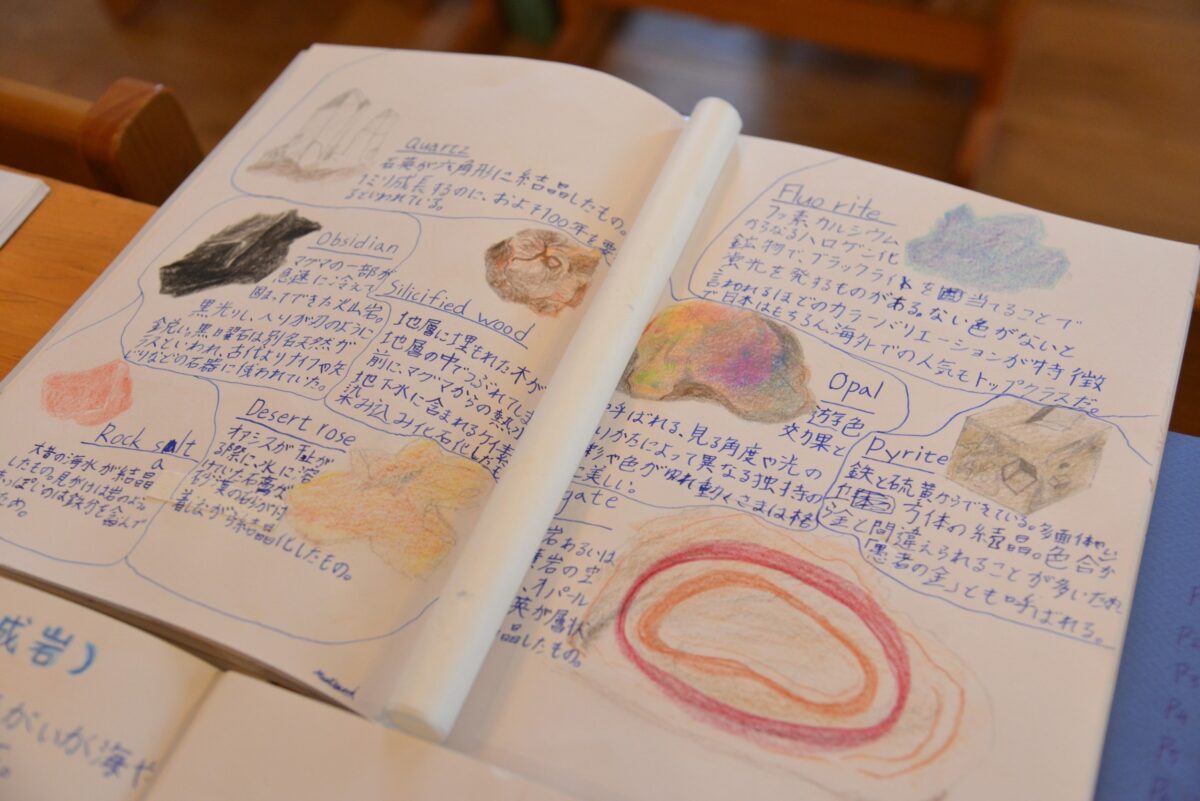 Quartz
石英が六角形に結晶したもの。
1ミリ成長するのに、およそ100年を要
するといわれている。
Obsidian
マグマの一部が
急速に冷えて
固まってできた火山岩。
黒光りし、へりが刃のように
鋭い。黒曜石は別名天然が
ラスといわれ、古代よりナイフや矢
じりなどの石器に使われていた。
Silicified wood
地層に埋もれた木が
地層の中でつぶれてしま
前に、マグマからの熱
地下水に含まれるケイ素
染み込み化石化した
Rock salt
大昔の海水が結晶
したもの。見かけは岩のよう。
っぽいのは鉄分を含んで
ため。
Desert rose
オアシスが
る際に、水に溶
けていた石膏が
砂漠の砂がけ
着しながら結晶化したもの。
Fluorite
フッ素カルシウム
からなるハロゲン化
鉱物で、ブラックライトを当てることで
蛍光を発するものがある。ない色がないと
言われるほどのカラーバリエーションが特徴
で日本はもちろん海外での人気もトップクラスだ。
Opal
遊色
効果と
呼ばれる、見る角度や光の
りかたによって異なる独特の
彩や色が現れ動くさまは格
に美しい。
Pyrite
鉄と硫黄からできている。多面体や
方体の結晶。色合が
金と間違えられることが多いため
「愚者の金」とも呼ばれる。
gate
岩あるいは
岩の空
オパール
英が層状
晶したもの。
成岩)
がいがく海や